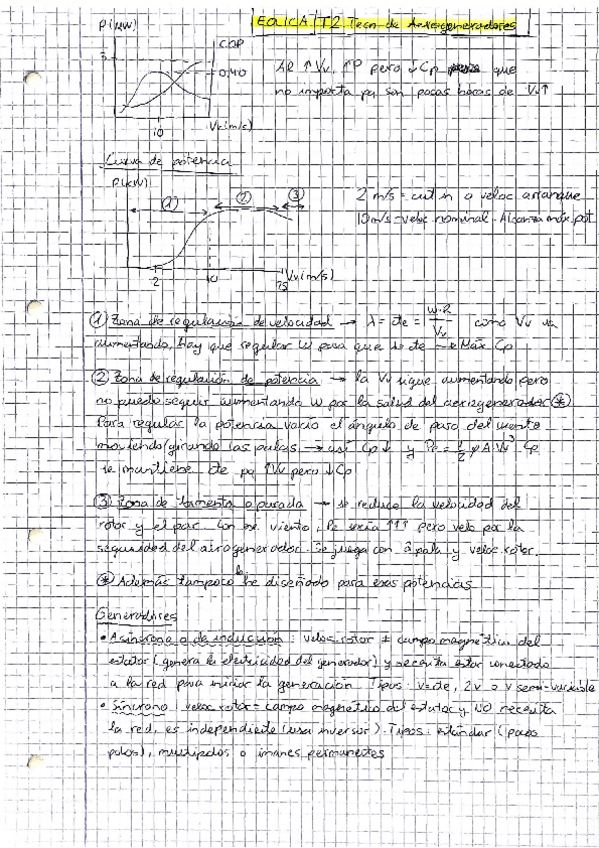 EOLICA T2. Tecn de Aerogeneradores
P(kW)
Cp
0,40
10
Vv(m/s)
Al ↑Vv, ↑P pero ↓Cp que
no importa pq son pocas horas de Vv↑
Curva de potencia
P(kW)
① ② ③
2 10 25 Vv(m/s)
2 m/s = cut in o veloc arranque
10 m/s = veloc nominal - Alcanza máx. pot
① Zona de regulación de velocidad → λ = cte = w·R/Vv como Vv va
aumentando, hay que regular w para que λ cte → Máx Cp
② Zona de regulación de potencia → la Vv sigue aumentando pero
no puede seguir aumentando w por la salud del aerogenerador ⊛
Para regular la potencia varío el ángulo de paso del viento
moviendo/girando las palas → así Cp↓ y Pe = 1/2 ρ A Vv³ Cp
se mantiene cte pq ↑Vv pero ↓Cp
③ Zona de tormenta o parada → se reduce la velocidad del
rotor y el par. Con ese viento, Pe sería ↑↑↑ pero velo por la
seguridad del airogenerador. Se juega con pala y veloc rotor.
⊛ Además tampoco lo he diseñado para esas potencias
Generadores
• Asíncrono o de inducción : veloc rotor ≠ campo magnético del
estator (genera la electricidad del generador) y necesita estar conectado
a la red para iniciar la generación Tipos: v=cte, 2v o v semi-variable
• Síncrono : veloc rotor = campo magnético del estator y NO necesita
la red, es independiente (usa inversor). Tipos: estándar (pocos
polos), multipolos o imanes permanentes